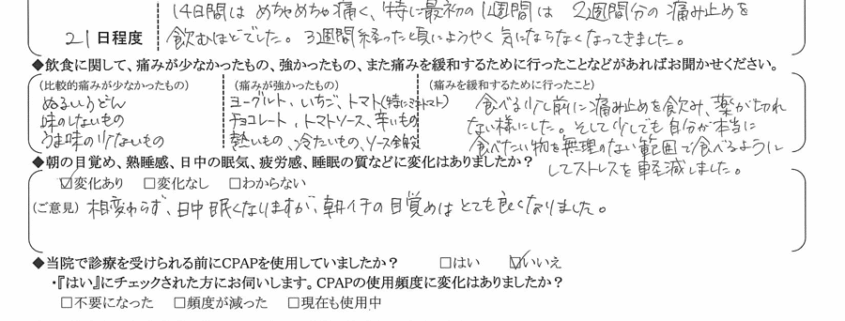 14日間は めちゃめちゃ痛く、特に最初の1週間は 2週間分の 痛み止めを
21 日程度 飲むほどでした。3週間経った頃にようやく 気にならなくなってきました。
◆飲食に関して、痛みが少なかったもの、強かったもの、また痛みを緩和するために行ったことなどがあればお聞かせください。
(比較的痛みが少なかったもの) (痛みが強かったもの) (痛みを緩和するために行ったこと)
ぬるいうどん ヨーグルト、いちご、トマト(特にミニトマト) 食べる少し前に痛み止めを飲み、薬が切れ
味のないもの チョコレート、トマトソース、辛いもの ない様にした。そして少しでも自分が本当に
うま味の少ないもの 熱いもの、冷たいもの、ソース全般 食べたい物を無理のない範囲で食べるように
してストレスを軽減しました。
◆朝の目覚め、熟睡感、日中の眠気、疲労感、睡眠の質などに変化はありましたか？
☑変化あり □変化なし □わからない
(ご意見) 相変わらず、日中眠くなりますが、朝イチの目覚めはとても良くなりました。
◆当院で診療を受けられる前にCPAPを使用していましたか？ □はい ☑いいえ
・『はい』にチェックされた方にお伺いします。CPAPの使用頻度に変化はありましたか？
□不要になった □頻度が減った □現在も使用中